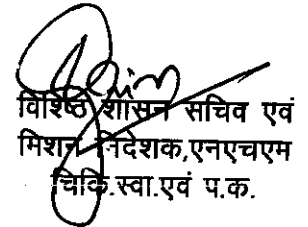 विशिष्ठ शासन सचिव एवं
मिशन निदेशक,एनएचएम
चिकि.स्वा.एवं प.क.